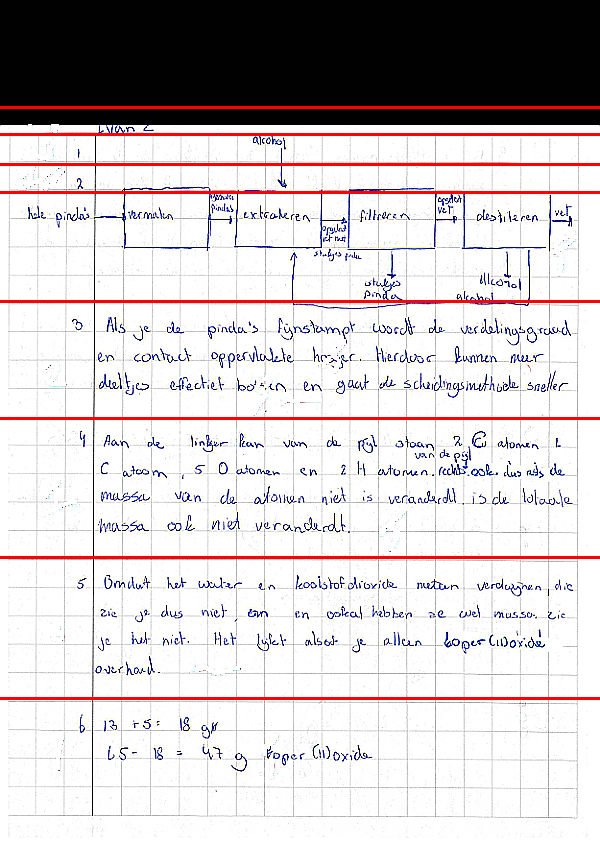 1 van 2
1
alcohol
2
hele pinda's
vermalen
pinda's
extraheren
filtreren
vet
destilleren
vet
stukjes pinda
stukjes
pinda
Alcohol
alcohol
3 Als je de pinda's fijnstampt wordt de verdelingsgraad
en contact oppervlakte hoger. Hierdoor kunnen meer
deeltjes effectief botsen en gaat de scheidingsmethode sneller
4 Aan de linker kan van de pijl staan 2 Cu atomen 1
van de pijl
C atoom, 5 O atomen en 2 H atomen. rechts ook. dus als de
massa van de atomen niet is veranderdt is de totaale
massa ook niet veranderdt.
5 Omdat het water en koolstofdioxide meteen verdwijnen, die
zie je dus niet, en ookal hebben ze wel massa, zie
je het niet. Het lijkt alsof je alleen koper(II)oxide
overhoud.
6 13 + 5 = 18 gr
65 - 18 = 47 g koper(II)oxide